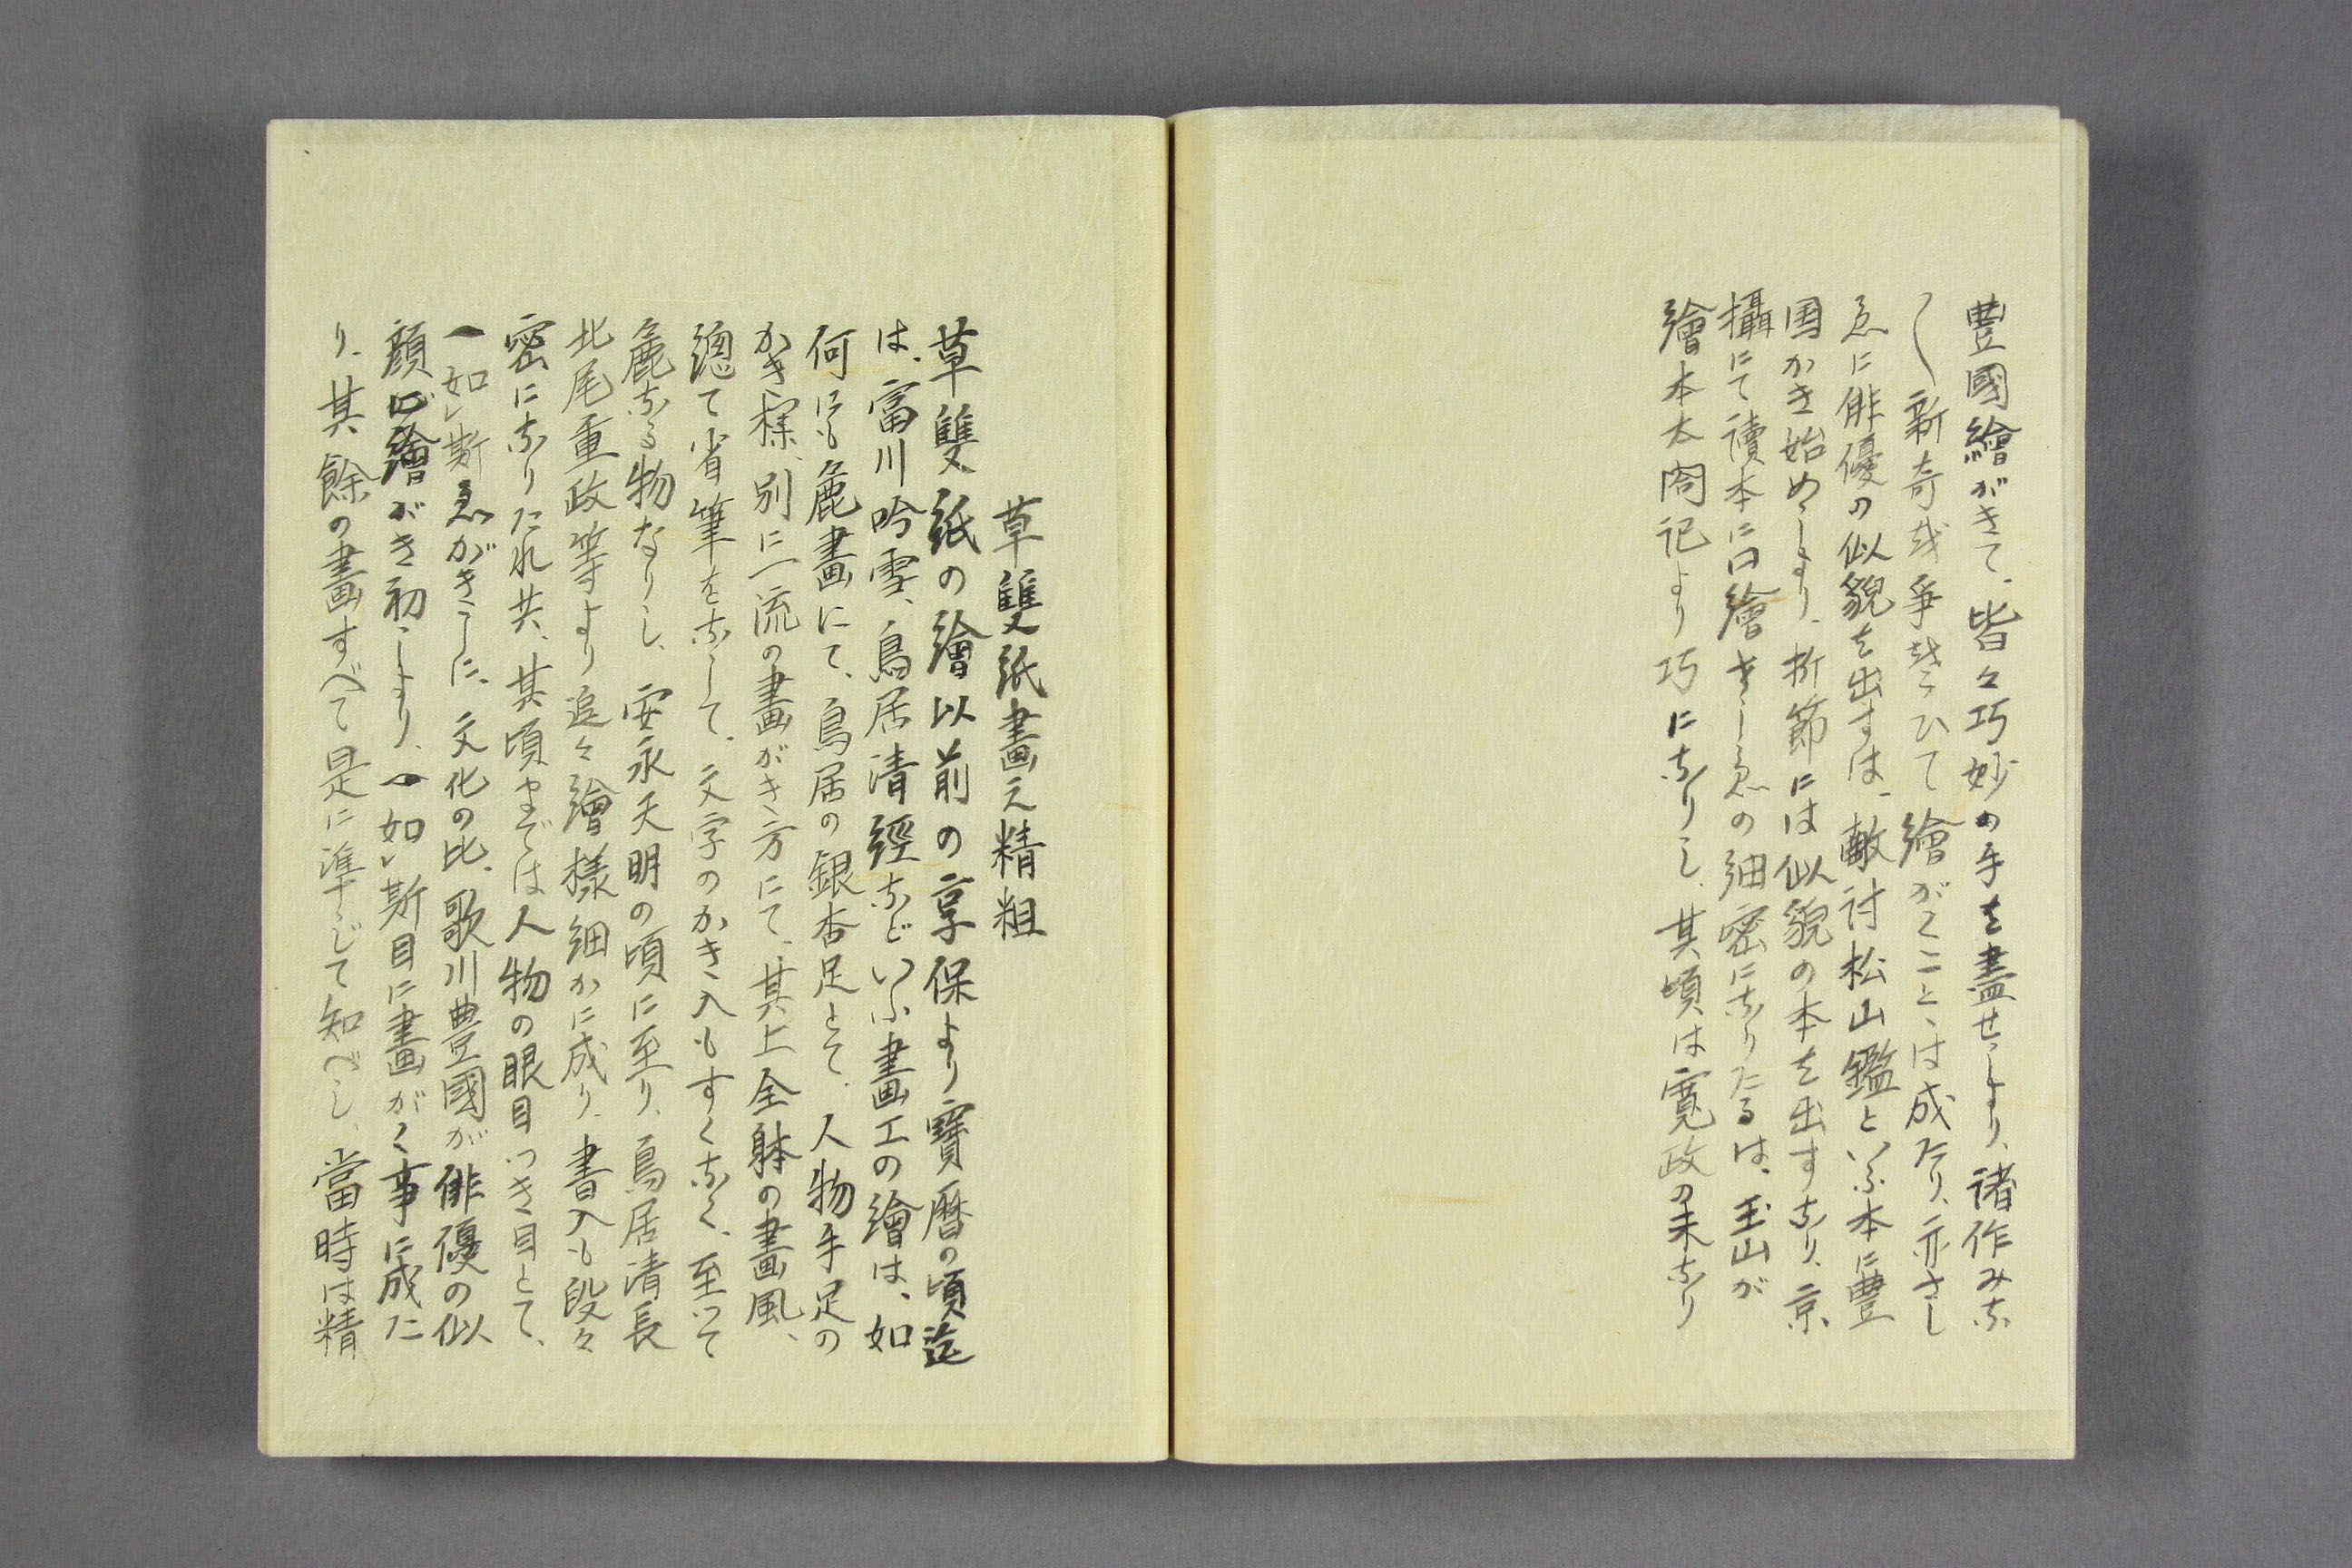 豊國繪がきて、皆々巧妙の手を盡せしより、諸作みな
新奇を爭そひて繪がくことゝは成たり、亦さし
ゑに俳優の似貌を出すは、敵討松山鑑といふ本に豊
国かき始めしより、折節には似貌の本を出すなり、京
攝にて讀本に口繪さしゑの細密になりたるは、玉山が
繪本太閤記より巧になりし、其頃は寛政の末なり
草雙紙畫之精粗
草雙紙の繪以前の享保より寶暦の頃迄
は、富川吟雪、鳥居清經などいふ畫工の繪は、如
何にも麁畫にて、鳥居の銀杏足とて、人物手足の
かき様、別に一流の畫がき方にて、其上全躰の畫風、
總て省筆をなして、文字のかき入もすくなく、至つて
麁なる物なりし、安永天明の頃に至り、鳥居清長
北尾重政等より追々繪樣細かに成り、書入も段々
密になりたれ共、其頃までは人物の眼目つき目とて、
如レ斯ゑがきしに、文化の比、歌川豊國が俳優の似
顔を繪がき初しより、如レ斯目に畫がく事に成た
り、其餘の畫すべて是に準じて知べし、當時は精